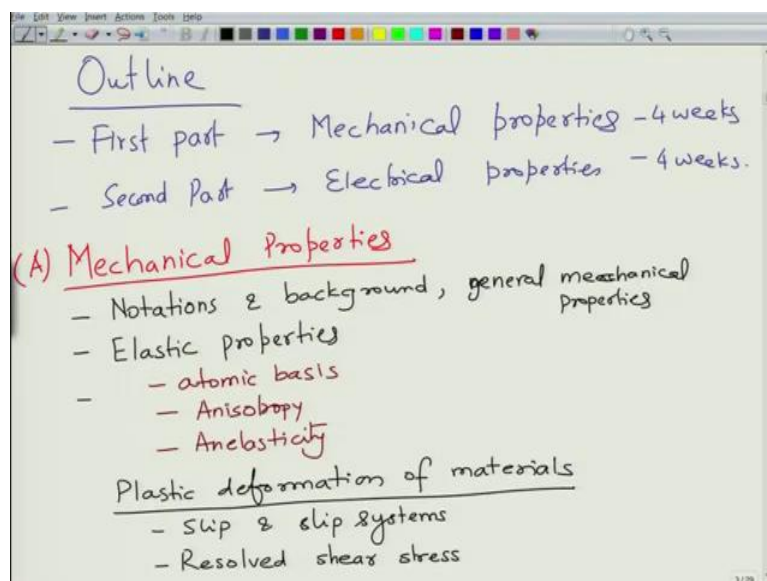 File Edit View Insert Actions Tools Help
Outline
- First part → Mechanical properties - 4 weeks
- Second Part → Electrical properties - 4 weeks.
(A) Mechanical Properties
- Notations & background, general mechanical properties
- Elastic properties
- atomic basis
-
- Anisotropy
- Anelasticity
Plastic deformation of materials
- Slip & slip systems
- Resolved shear stress
3/29